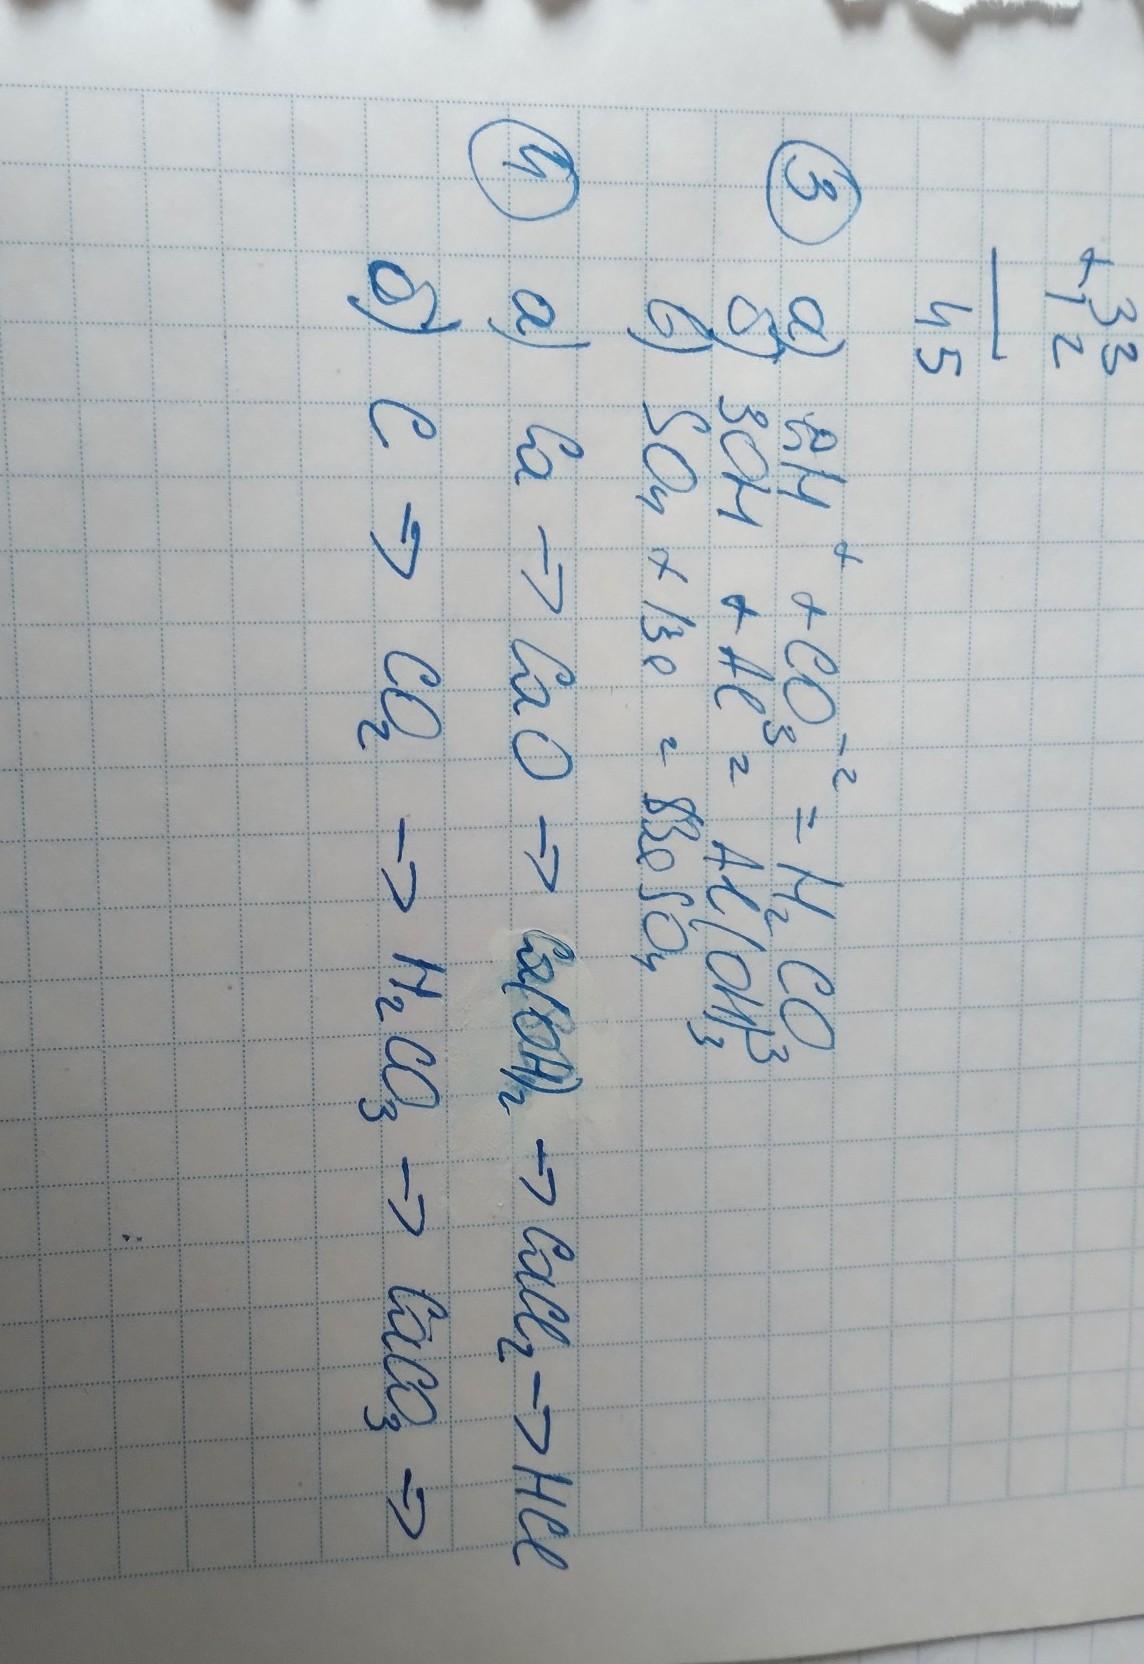 + 33
12
45
3 а) 2H⁺ + CO₃⁻² = H₂CO₃
б) 3OH + Al³ = Al(OH)₃
в) SO₄ + Be = BeSO₄
4 а) Ca → CaO → Ca(OH)₂ → CaCl₂ → HCl
б) C → CO₂ → H₂CO₃ → CaCO₃ →